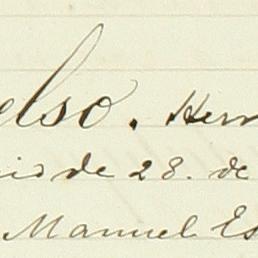 elso. Hern
io de 28. de
Manuel Es